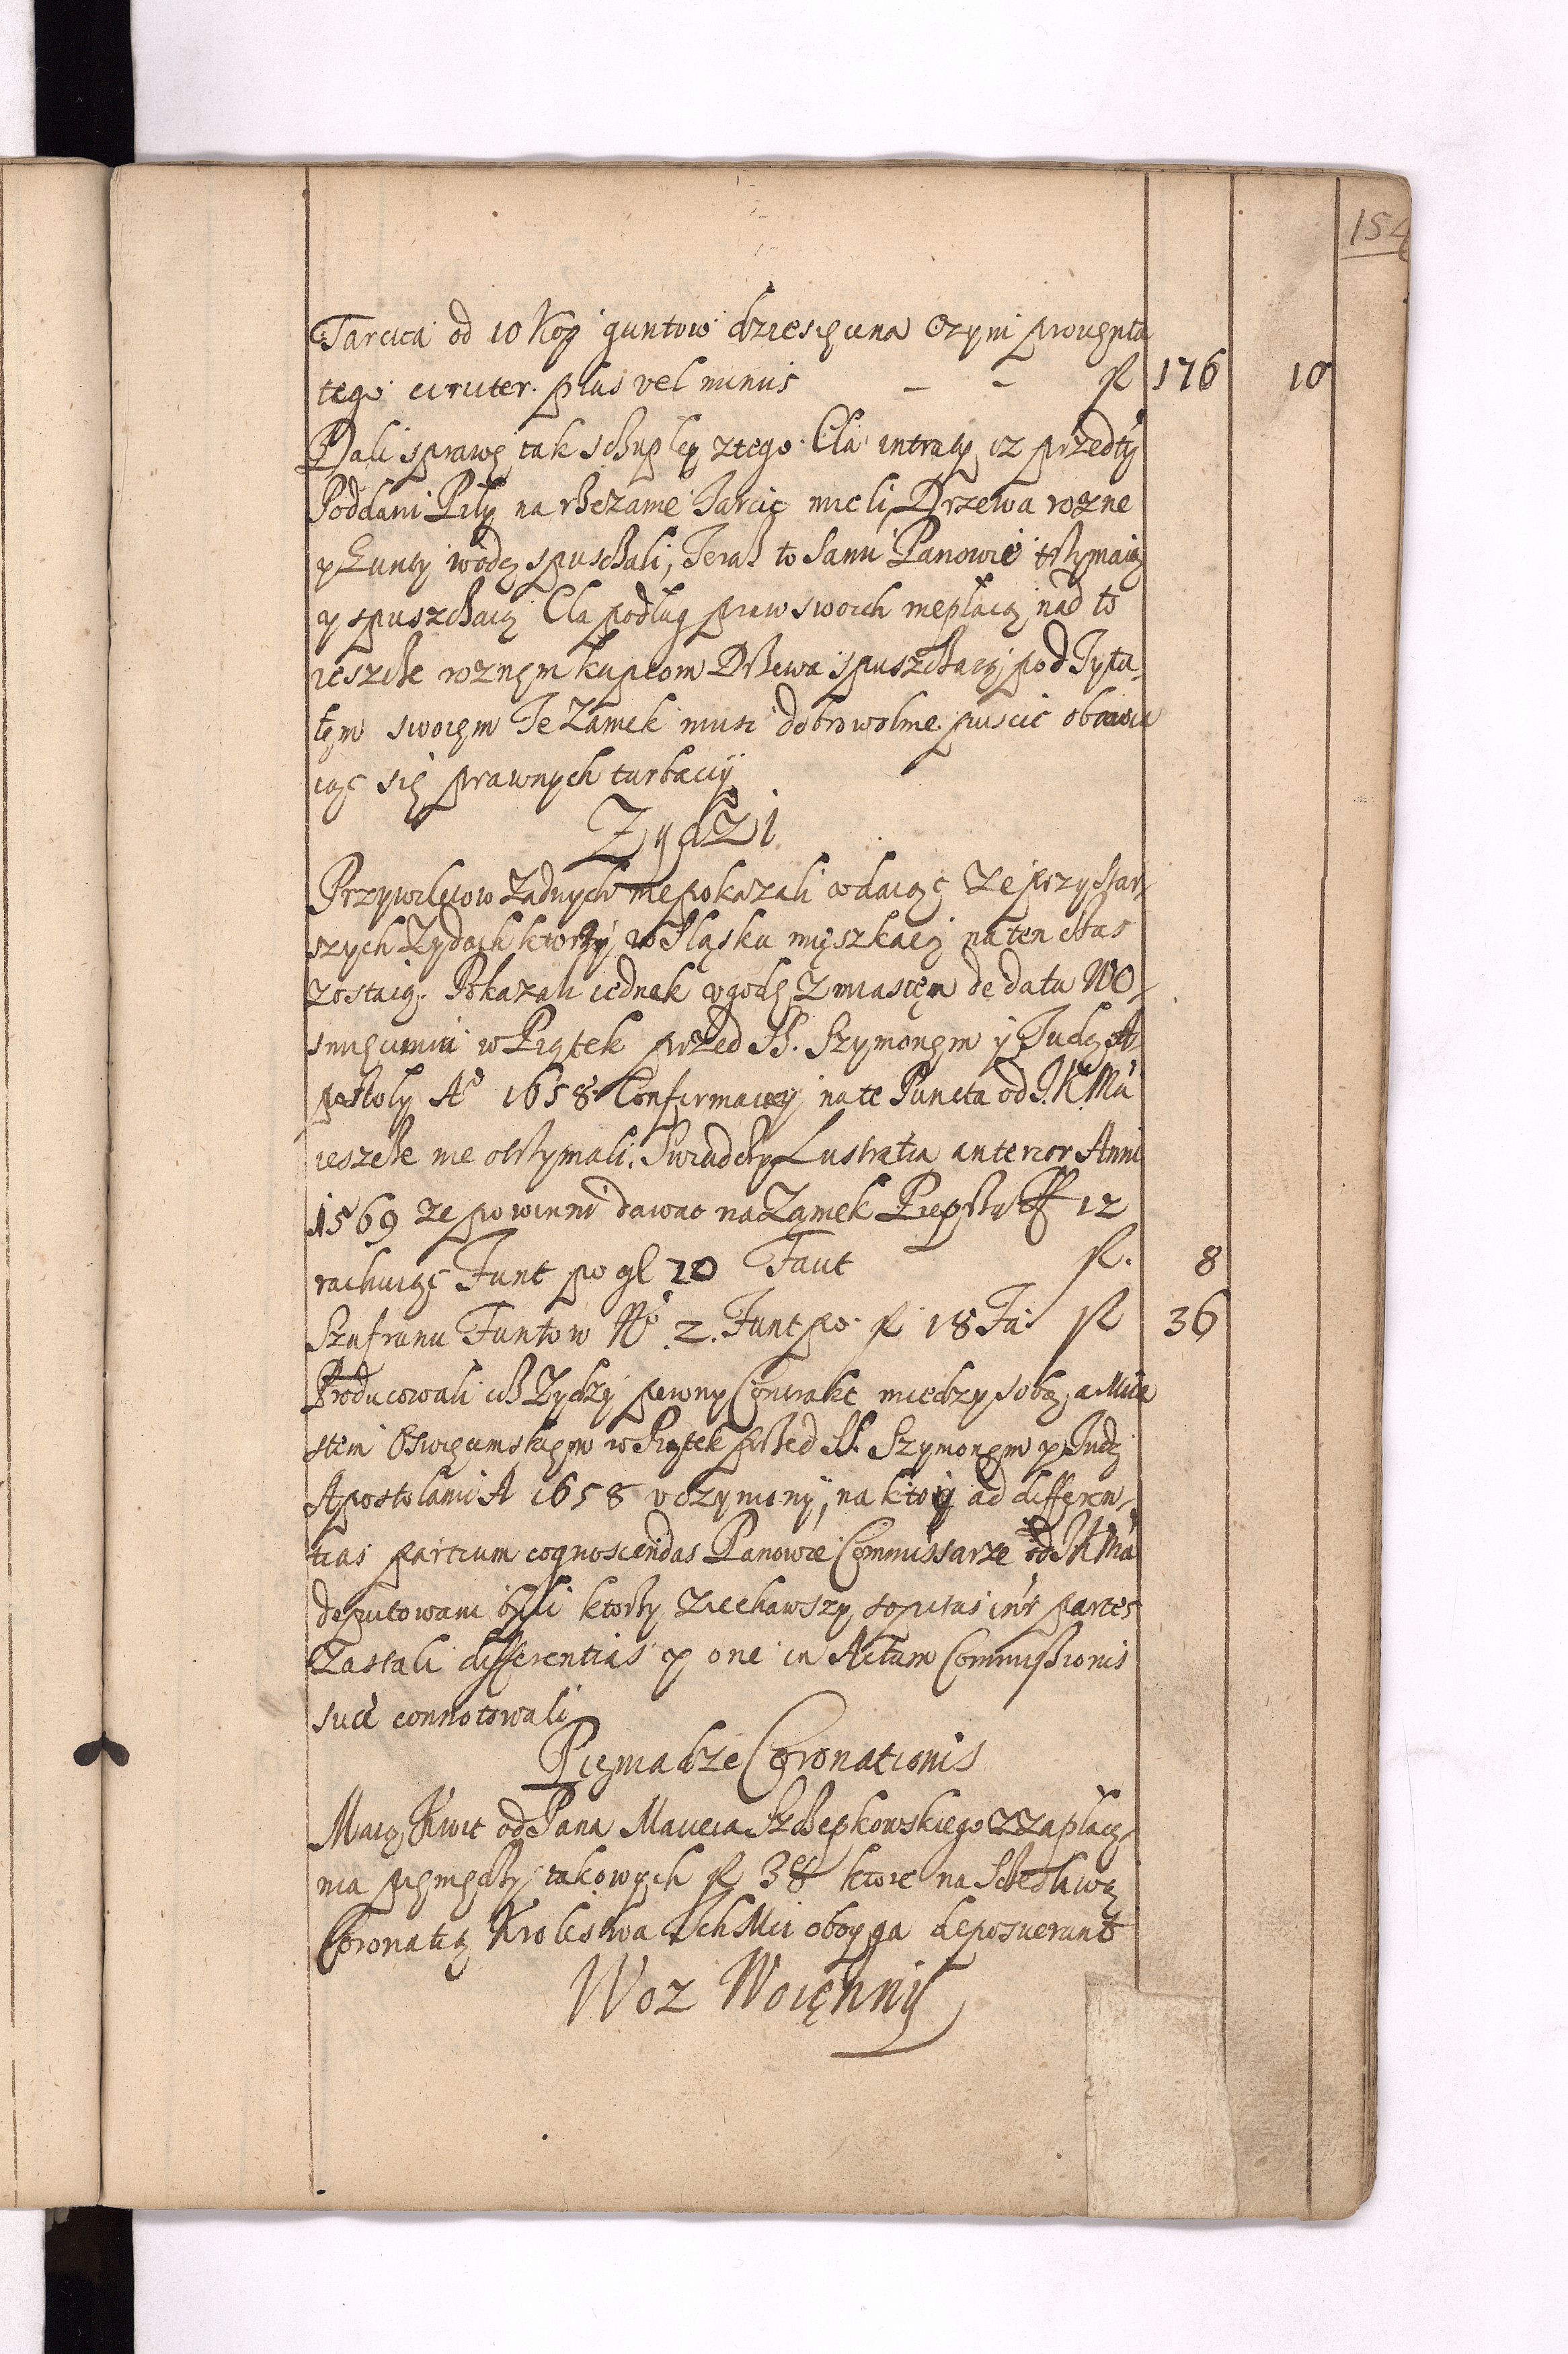 154
Tarcica od 10 Kop guntow dziesięcina Czyni prouentu
tego circiter plus vel minus — — fl 176 10
Dali sprawę tak schupley z tego Cła intraty, iz przedty
Poddani Piły na rżezanie Tarcic mieli, Drzewa rozne
y Gunty wodą spuschali, Teraß to Sami Panowie trzymaią
y spuszchaią Cła podług praw swoich niepłacą, nad to
ieszcże roznęm kupcom Drzewa spuszchaią pod Tytu-
łęm swoięm Te Zamek musi dobrowolnie puscic obawia
iąc się prawnych turbaciy
Zydzi
Przywileiow żadnych niepokazali wdaiąc ze przy star-
szych Zydach ktorzy w Sląsku mięszkaią na ten cżas
zostaią. Pokazali iednak vgodę z miastęm de data w O-
swięcimiu w Piątek przed SS. Szymonęm y Judą A-
postoły Aº 1658 Confirmacyi na te Puncta od J.K.Mci
ieszcże nie otrzymali. Swiadcży Lustratia anterior Anni
1569 ze powinni dawac na Zamek Pieprzu ff 12
rachuiąc Funt po gl 20 Faut fl. 8
Szafranu Funtow Nº 2. Funt po fl 18 Fa: fl 36
Producowali ciż Zydzy pewny Contrakt miedzy sobą, a Mia
stem Oswięcimskięm w Piątek przed SS. Szymonęm y Judą
Apostolami A 1658 vczyniony, na ktory ad differen-
tias partium cognoscendas Panowie Commissarze od JKMci
deputowani byli ktorzy ziechawszy sopitas intr partes
Zastali differentias y one in Actum Commissionis
suæ connotowali
Pięniadze Coronationis
Maią Kwit od Pana Macieia Szcżepkowskiego z zapłacę-
nia pięniędzy takowych fl 38 ktore na Scżęsliwą
Coronatią Krolestwa Ich Mci oboyga deposuerunt
Woz Woięnny